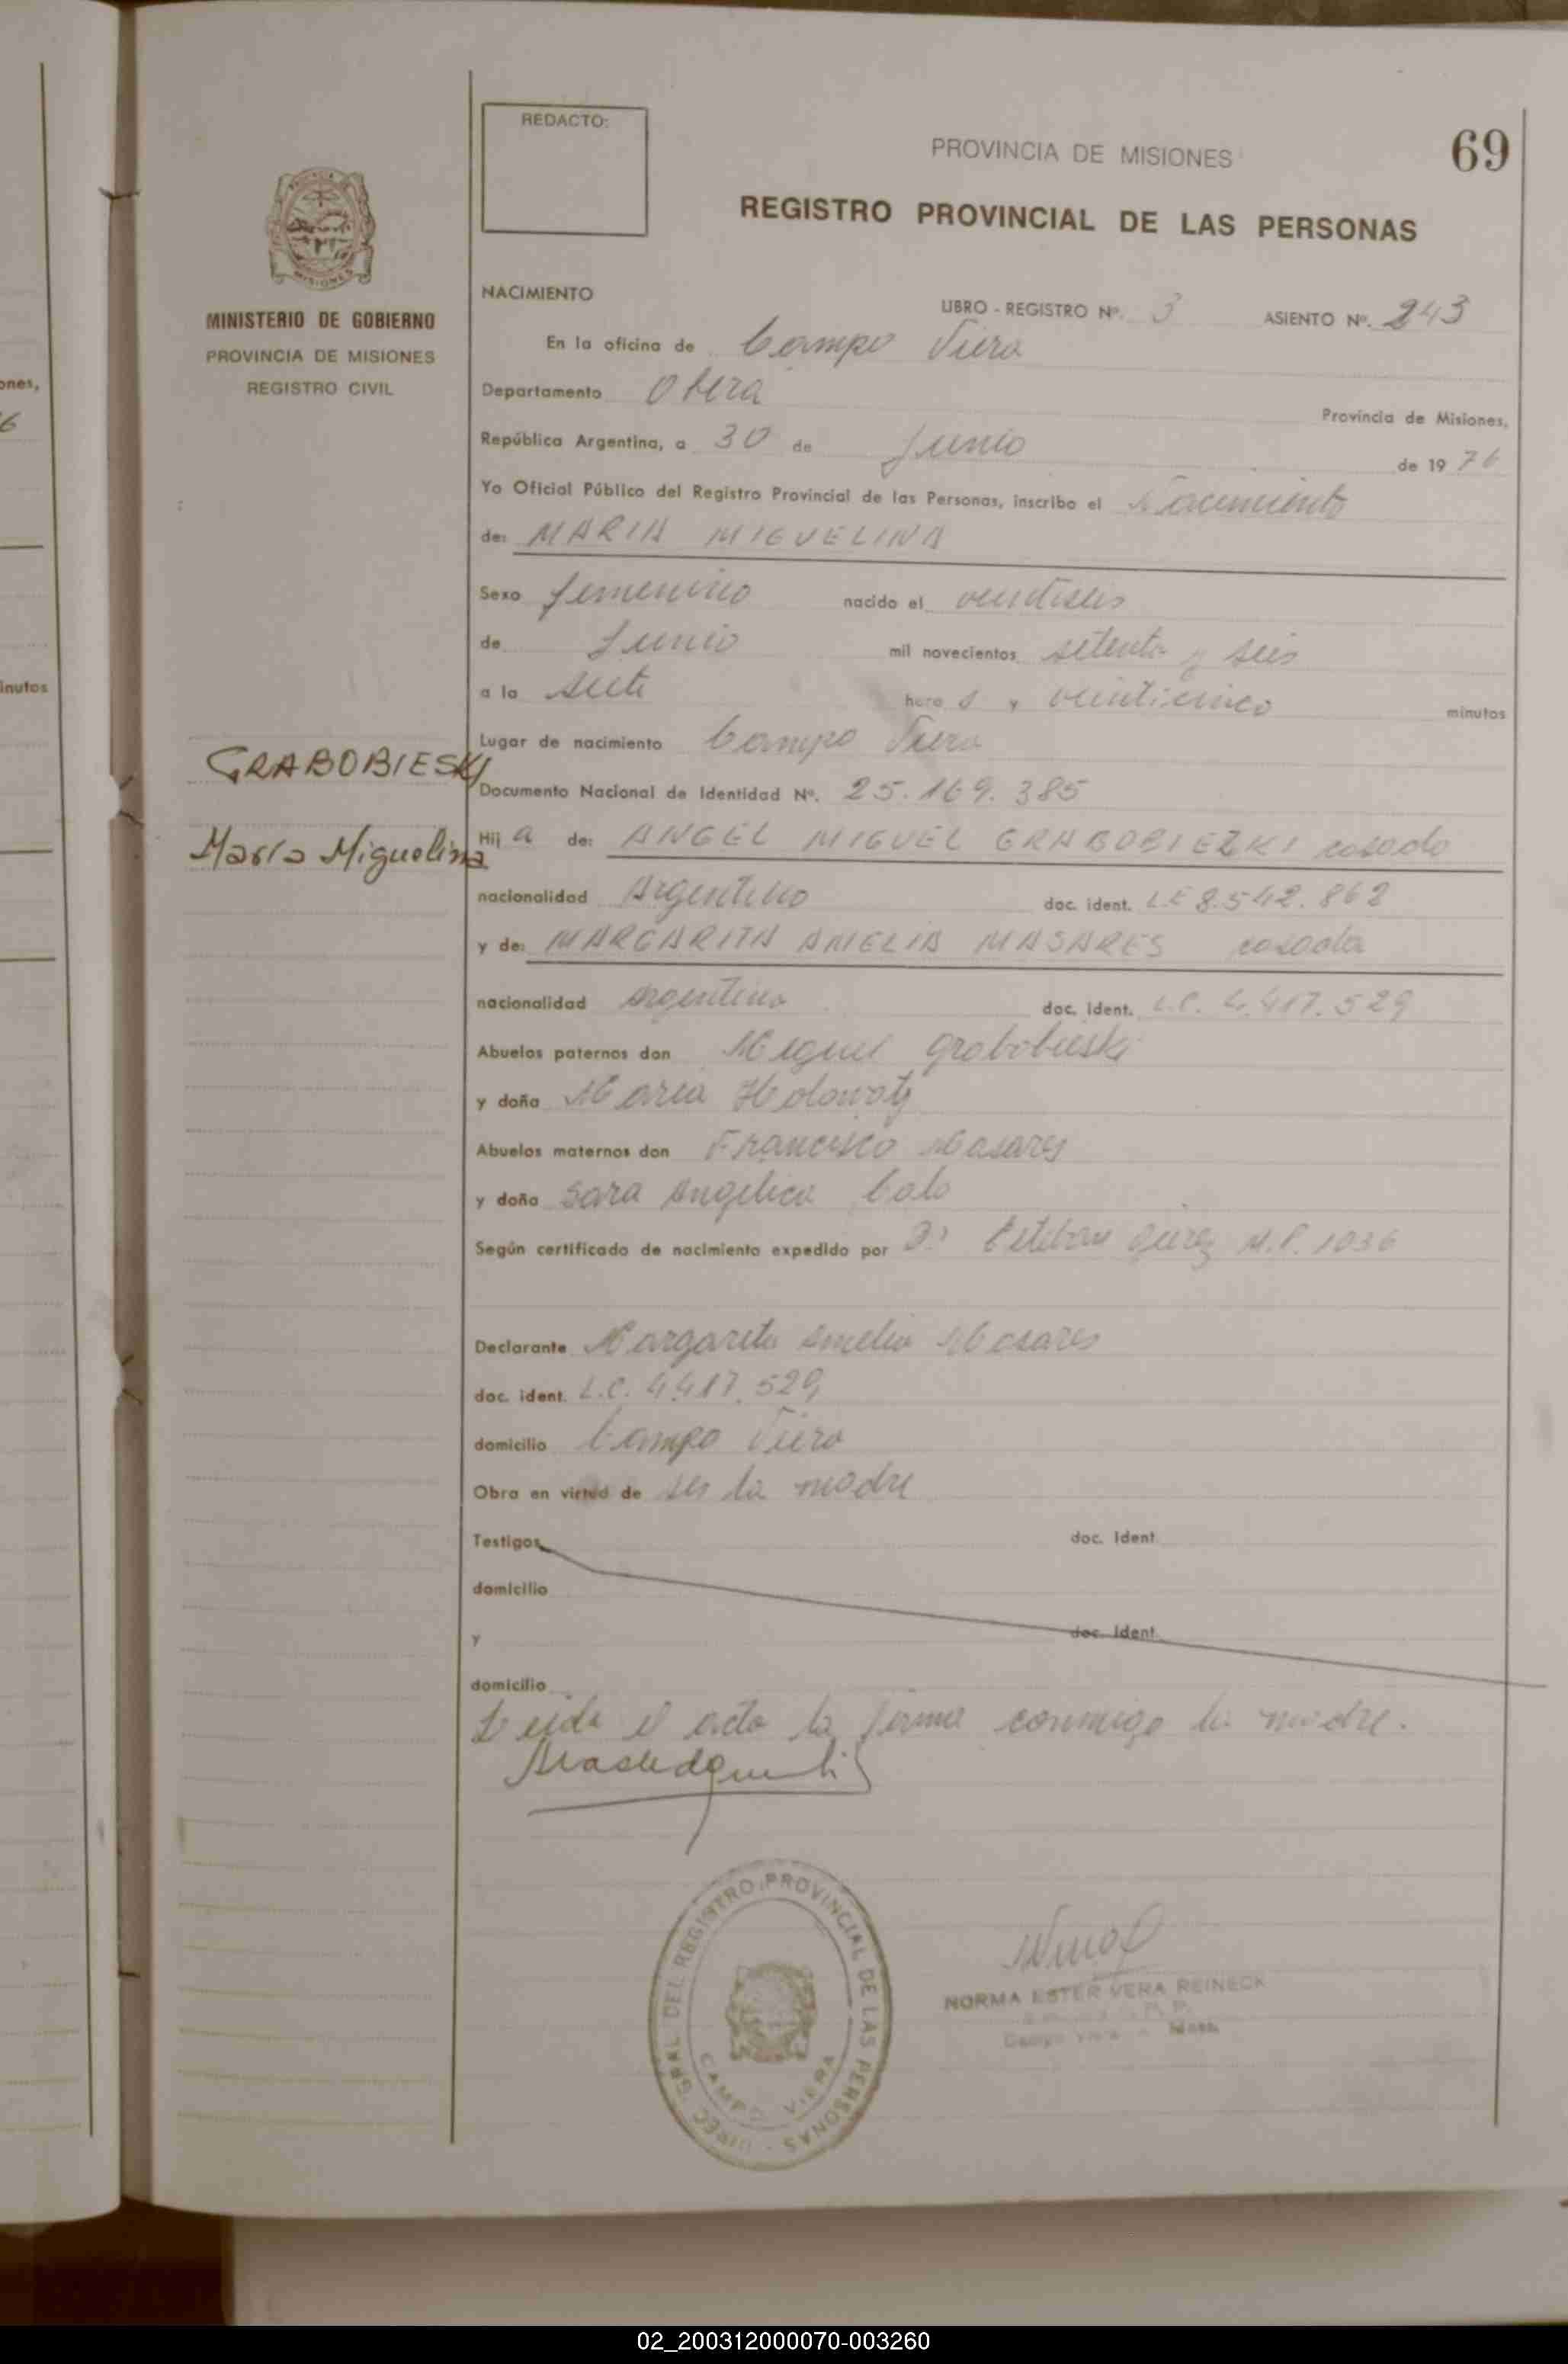 ones,
6
inutos
MISIONES
MINISTERIO DE GOBIERNO
PROVINCIA DE MISIONES
REGISTRO CIVIL
GRABOBIESKI
María Miguelina
REDACTO:
PROVINCIA DE MISIONES
69
REGISTRO PROVINCIAL DE LAS PERSONAS
NACIMIENTO
LIBRO - REGISTRO Nº. 3 ASIENTO Nº. 243
En la oficina de Campo Viera
Departamento Oberá Provincia de Misiones,
República Argentina, a 30 de Junio de 1976
Yo Oficial Público del Registro Provincial de las Personas, inscribo el Nacimiento
de: MARIA MIGUELINA
Sexo femenino nacido el veintiseis
de Junio mil novecientos setenta y seis
a la siete hora s y veinticinco minutos
Lugar de nacimiento Campo Viera
Documento Nacional de Identidad Nº. 25.169.385
Hij a de: ANGEL MIGUEL GRABOBIEZKI casado
nacionalidad Argentino doc. ident. L E 8.542.862
y de: MARGARITA AMELIA MASARES casada
nacionalidad argentina doc. ident. L.C. 4.417.529
Abuelos paternos don Miguel Grabobieski
y doña Maria Holowaty
Abuelos maternos don Francisco Masares
y doña Sara Angelica
Según certificado de nacimiento expedido por Dr Esteban M.P. 1036
Declarante Margarita Amelia Masares
doc. ident. L.C. 4.417.529
domicilio Campo Viera
Obra en virtud de ser la madre
Testigos doc. Ident.
domicilio
y doc. Ident.
domicilio
Leida el acta la firma conmigo la madre.
DIREC. GRAL. DEL REGISTRO PROVINCIAL DE LAS PERSONAS
CAMPO VIERA
NORMA ESTER VERA REINECK
Campo Viera - Mnes.
02_200312000070-003260